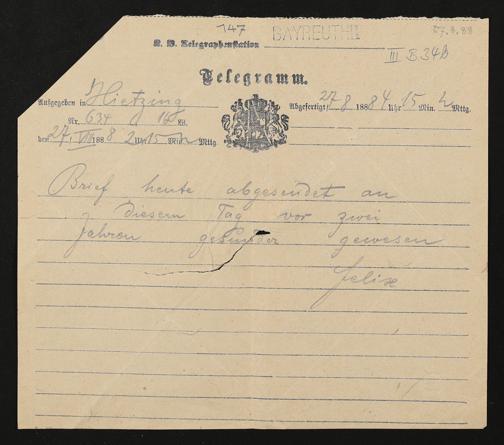 147
BAYREUTH II
27.8.88
K. B. Telegraphenstation
III B 34B
Telegramm.
Ausgegeben in Hietzing
Abgefertigt 27 8 1888 4 Uhr 15 Min. N Mttg.
Nr. 634 16 W.
den 27. VIII 1888 2 Uhr 15 Min. N Mttg.
Brief heute abgesendet an
diesem Tag vor zwei
Jahren gesünder gewesen
Felix